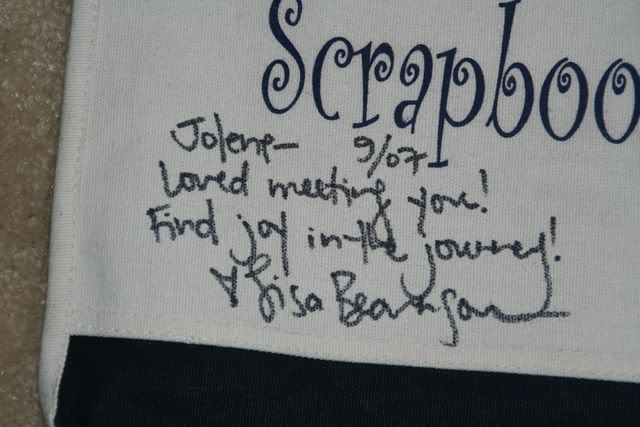 Scrapboo
Jolene- 9/07
Loved meeting you!
Find joy in the journey!
Lisa Bearnson